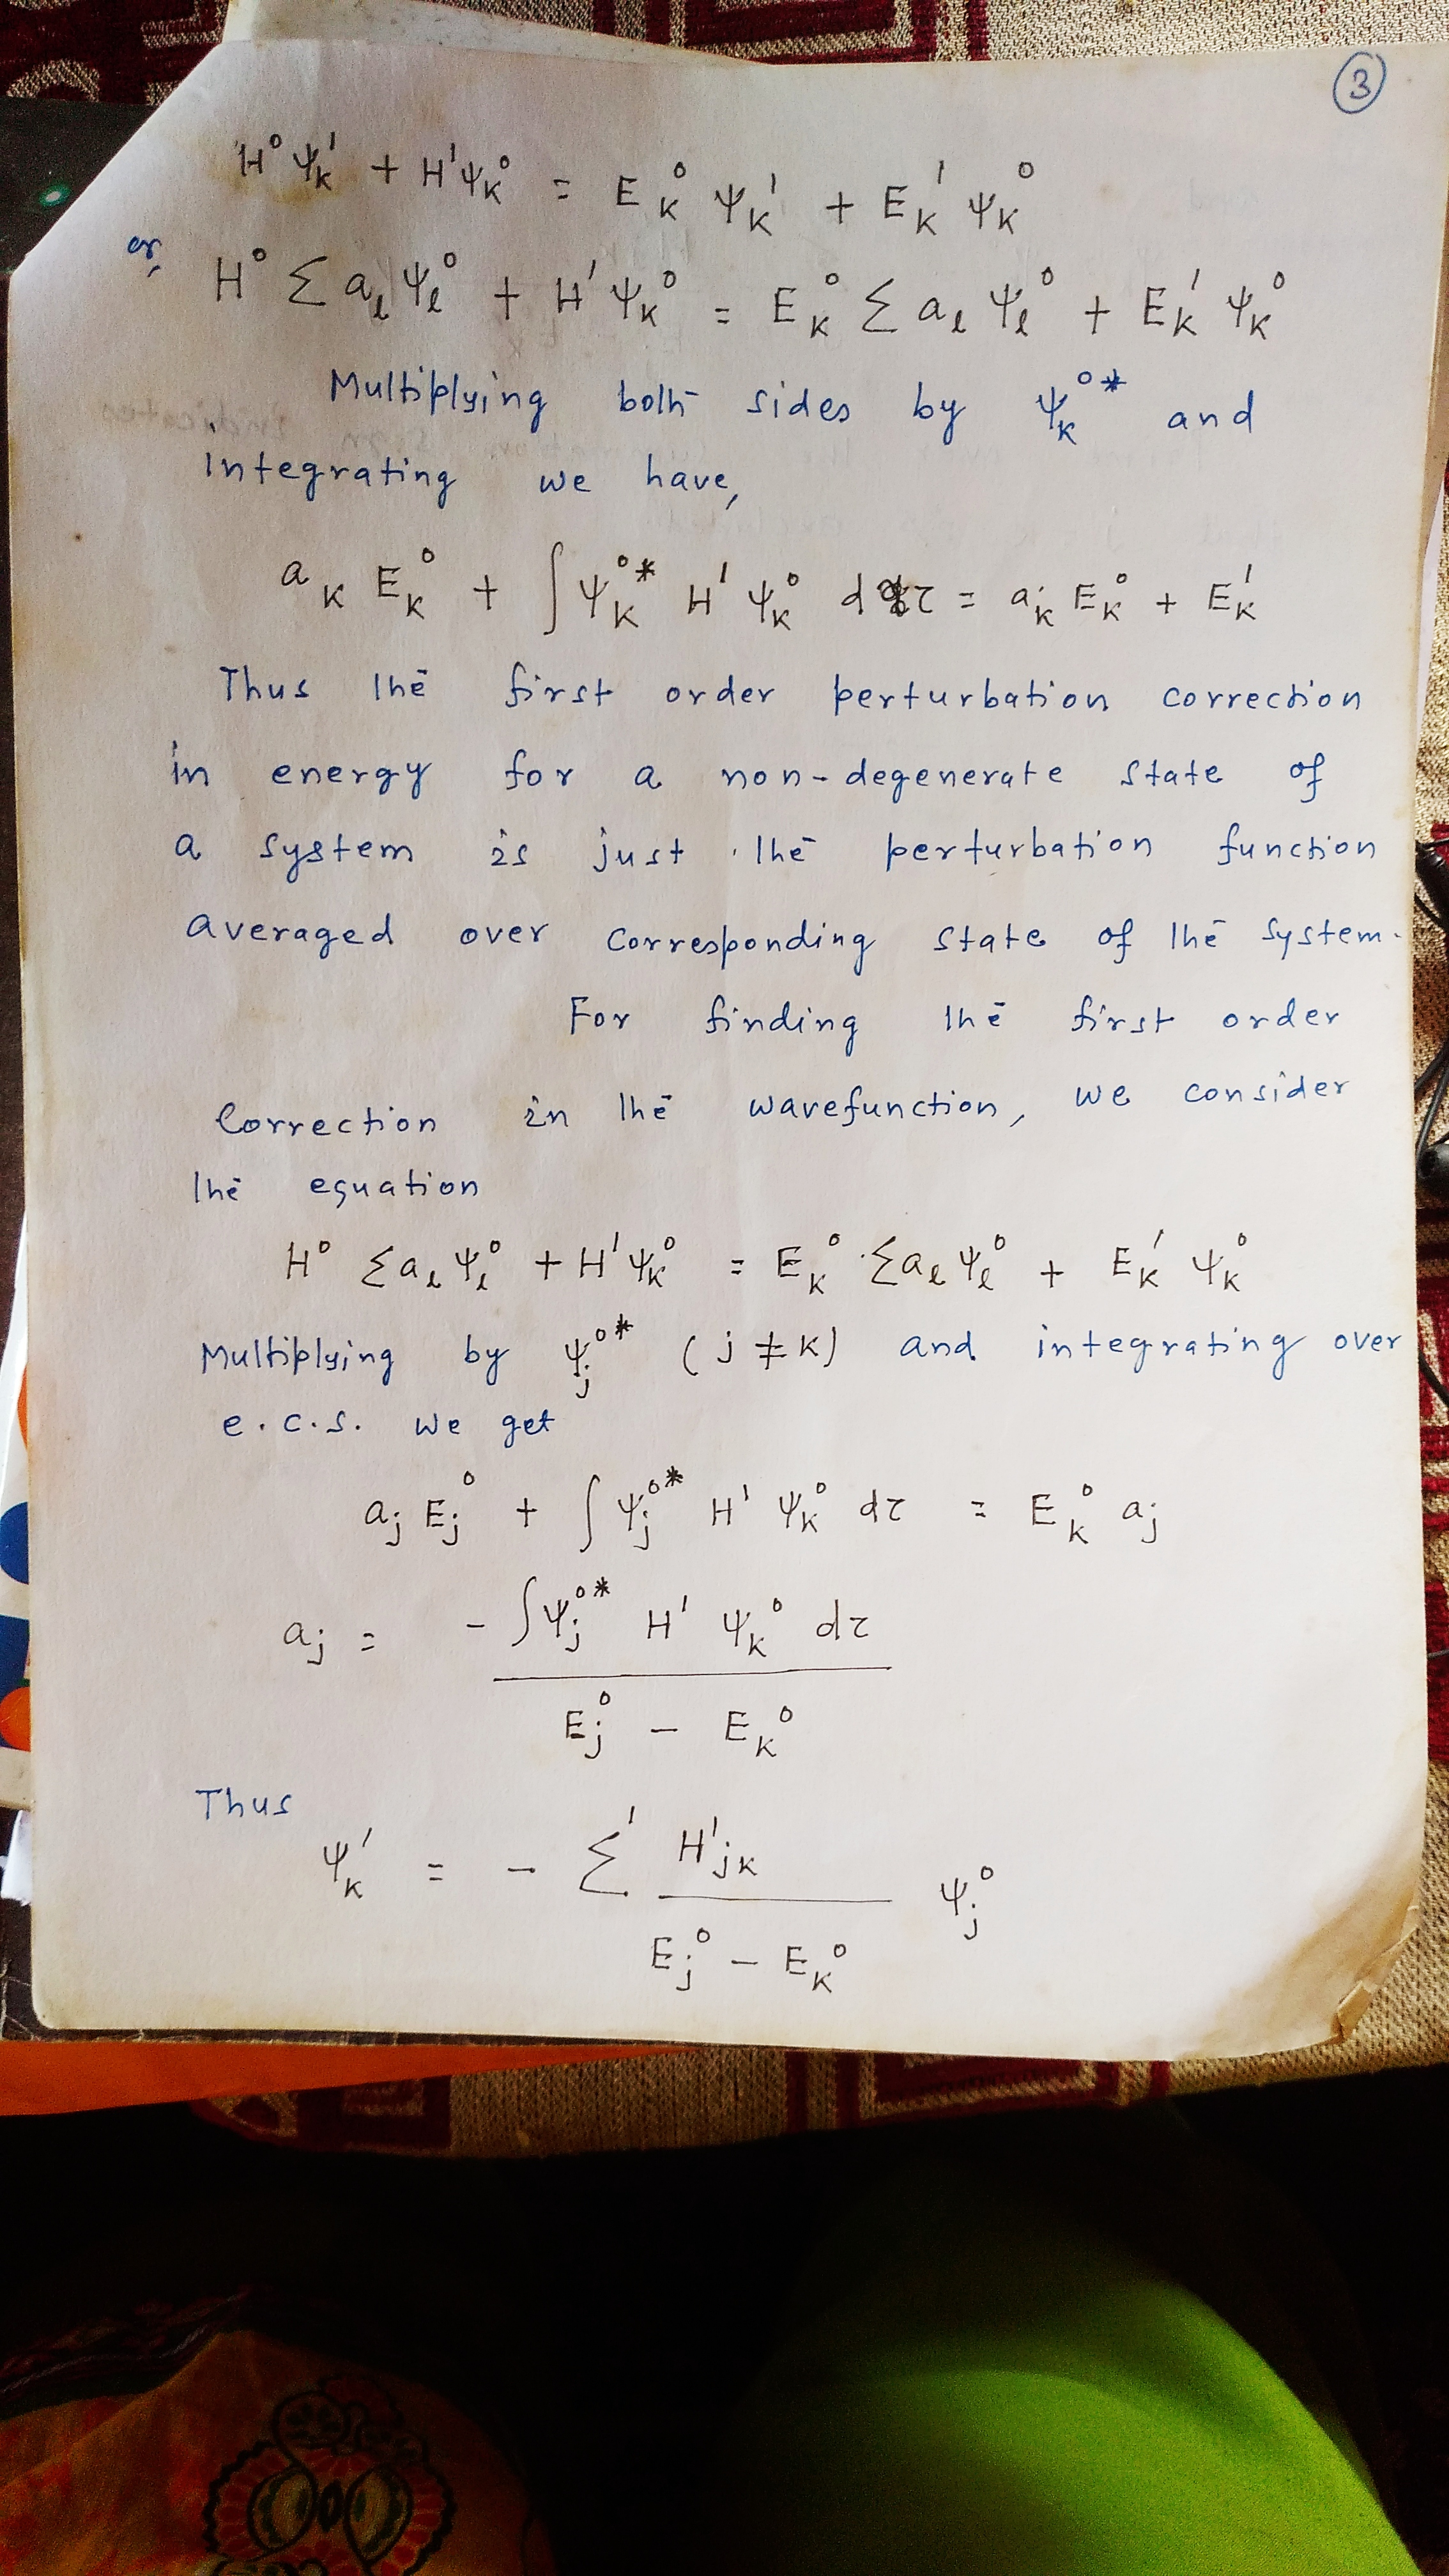 3
H⁰ψₖ' + H'ψₖ⁰ = Eₖ⁰ ψₖ' + Eₖ' ψₖ⁰
or, H⁰ Σ aₗ ψₗ⁰ + H' ψₖ⁰ = Eₖ⁰ Σ aₗ ψₗ⁰ + Eₖ' ψₖ⁰
Multiplying both sides by ψₖ⁰* and
Integrating we have,
aₖ Eₖ⁰ + ∫ψₖ⁰* H' ψₖ⁰ dτ = aₖ Eₖ⁰ + Eₖ'
Thus the first order perturbation correction
in energy for a non-degenerate state of
a system is just the perturbation function
averaged over corresponding state of the system.
For finding the first order
Correction in the wavefunction, we consider
the equation
H⁰ Σaₗ ψₗ⁰ + H'ψₖ⁰ = Eₖ⁰ Σaₗ ψₗ⁰ + Eₖ' ψₖ⁰
Multiplying by ψⱼ⁰* (j ≠ k) and integrating over
e.c.s. we get
aⱼ Eⱼ⁰ + ∫ψⱼ⁰* H' ψₖ⁰ dτ = Eₖ⁰ aⱼ
aⱼ = - ∫ψⱼ⁰* H' ψₖ⁰ dτ
Eⱼ⁰ - Eₖ⁰
Thus
ψₖ' = - Σ' H'ⱼₖ ψⱼ⁰
Eⱼ⁰ - Eₖ⁰